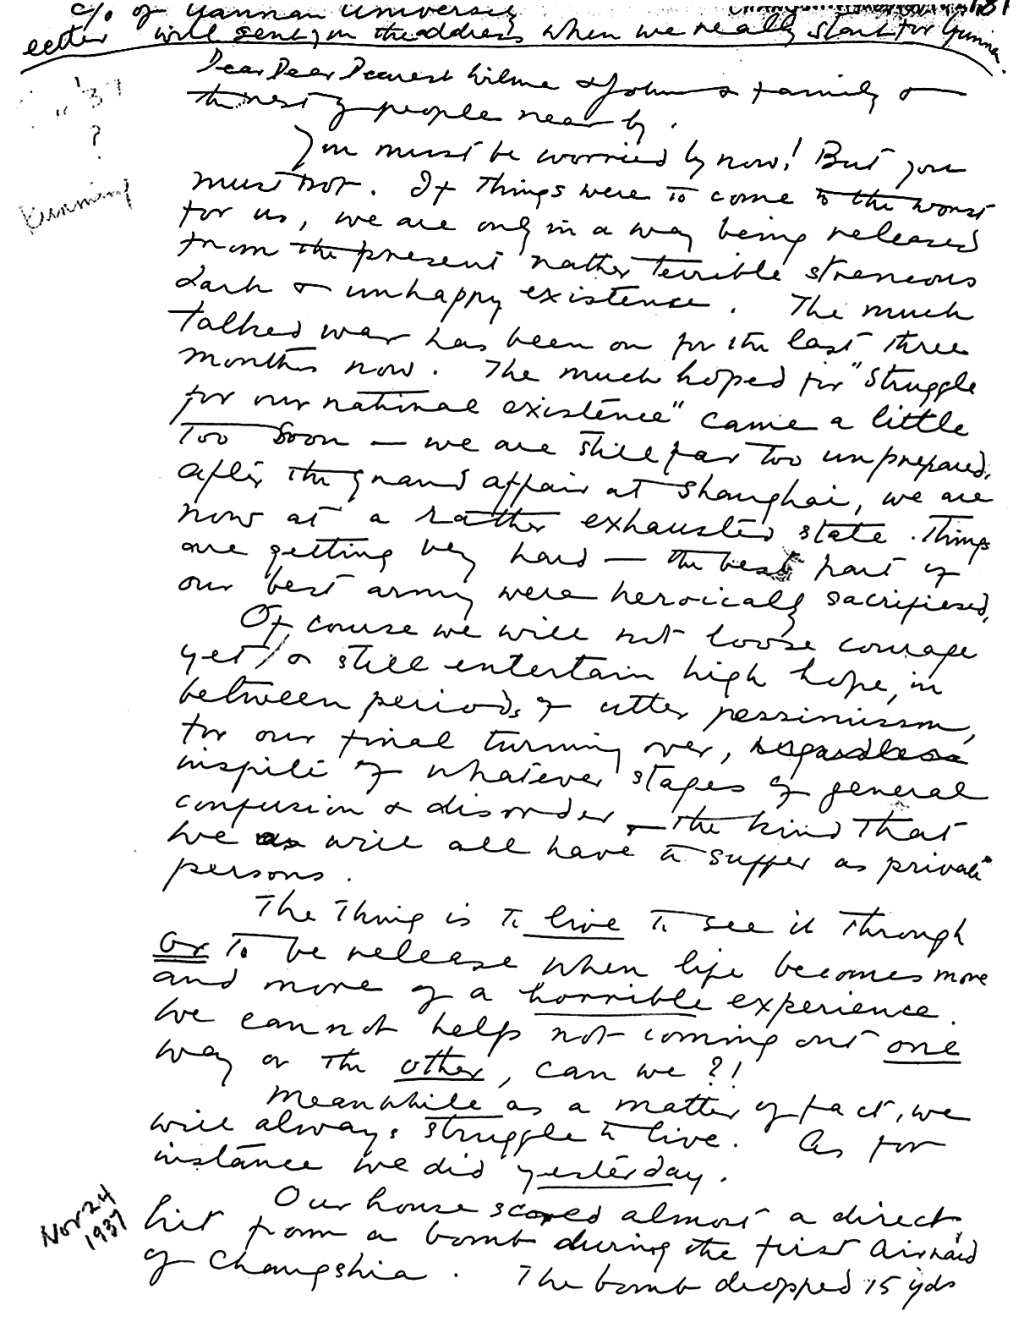 c/o of Yannan University
eetter will sent, in the address when we really start for Yunnan.
'37
" '37
?
Kunming
Dear Dear Dearest Wilma & John & family &
the rest of people near by.
You must be worried by now! But you
must not. If things were to come to the worst
for us, we are only in a way being released
from the present rather terrible streneous
dark & unhappy existence. The much
talked war has been on for the last three
months now. The much hoped for "struggle
for our national existence" came a little
too soon — we are still far too unprepared.
After the grand affair at Shanghai, we are
now at a rather exhausted state. Things
are getting very hard — the best part of
our best army were heroically sacrifiesed.
Of course we will not loose courage
yet, & still entertain high hope, in
between periods of utter pessimissm,
for our final turning over, regardless
inspite of whatever stages of general
confusion & disorder & the kind that
we as will all have to suffer as private
persons.
The thing is to live to see it through
or to be release when life becomes more
and more of a horrible experience.
We cannot help not coming out one
way or the other, can we?!
Meanwhile as a matter of fact, we
will always struggle to live. As for
instance we did yesterday.
Nov 24
1937
Our house scored almost a direct
hit from a bomb during the first air raid
of Changshia. The bomb dropped 15 yds